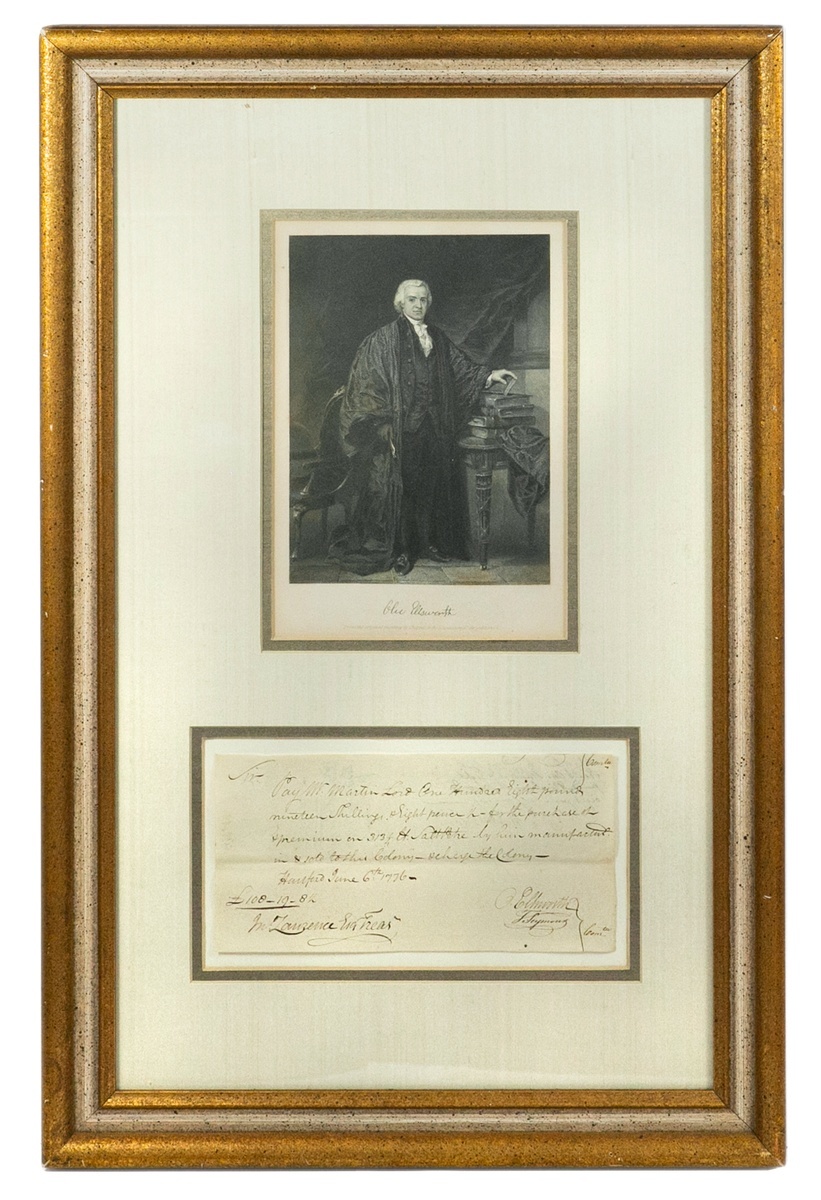 Oliv Ellsworth
Sir
Pay Mr Martin Lord One Hundred Eight pounds
nineteen Shillings & Eight pence ½ - for the purchase &
premium on 313 lb Saltpetre by him manufactur'd
in & sold to this Colony - & charge the Colony -
Hartford June 6th 1776 -
£108 - 19 - 8½
Jn° Lawrence Esqr Treasr
O Ellsworth
T. Seymour
Comtee